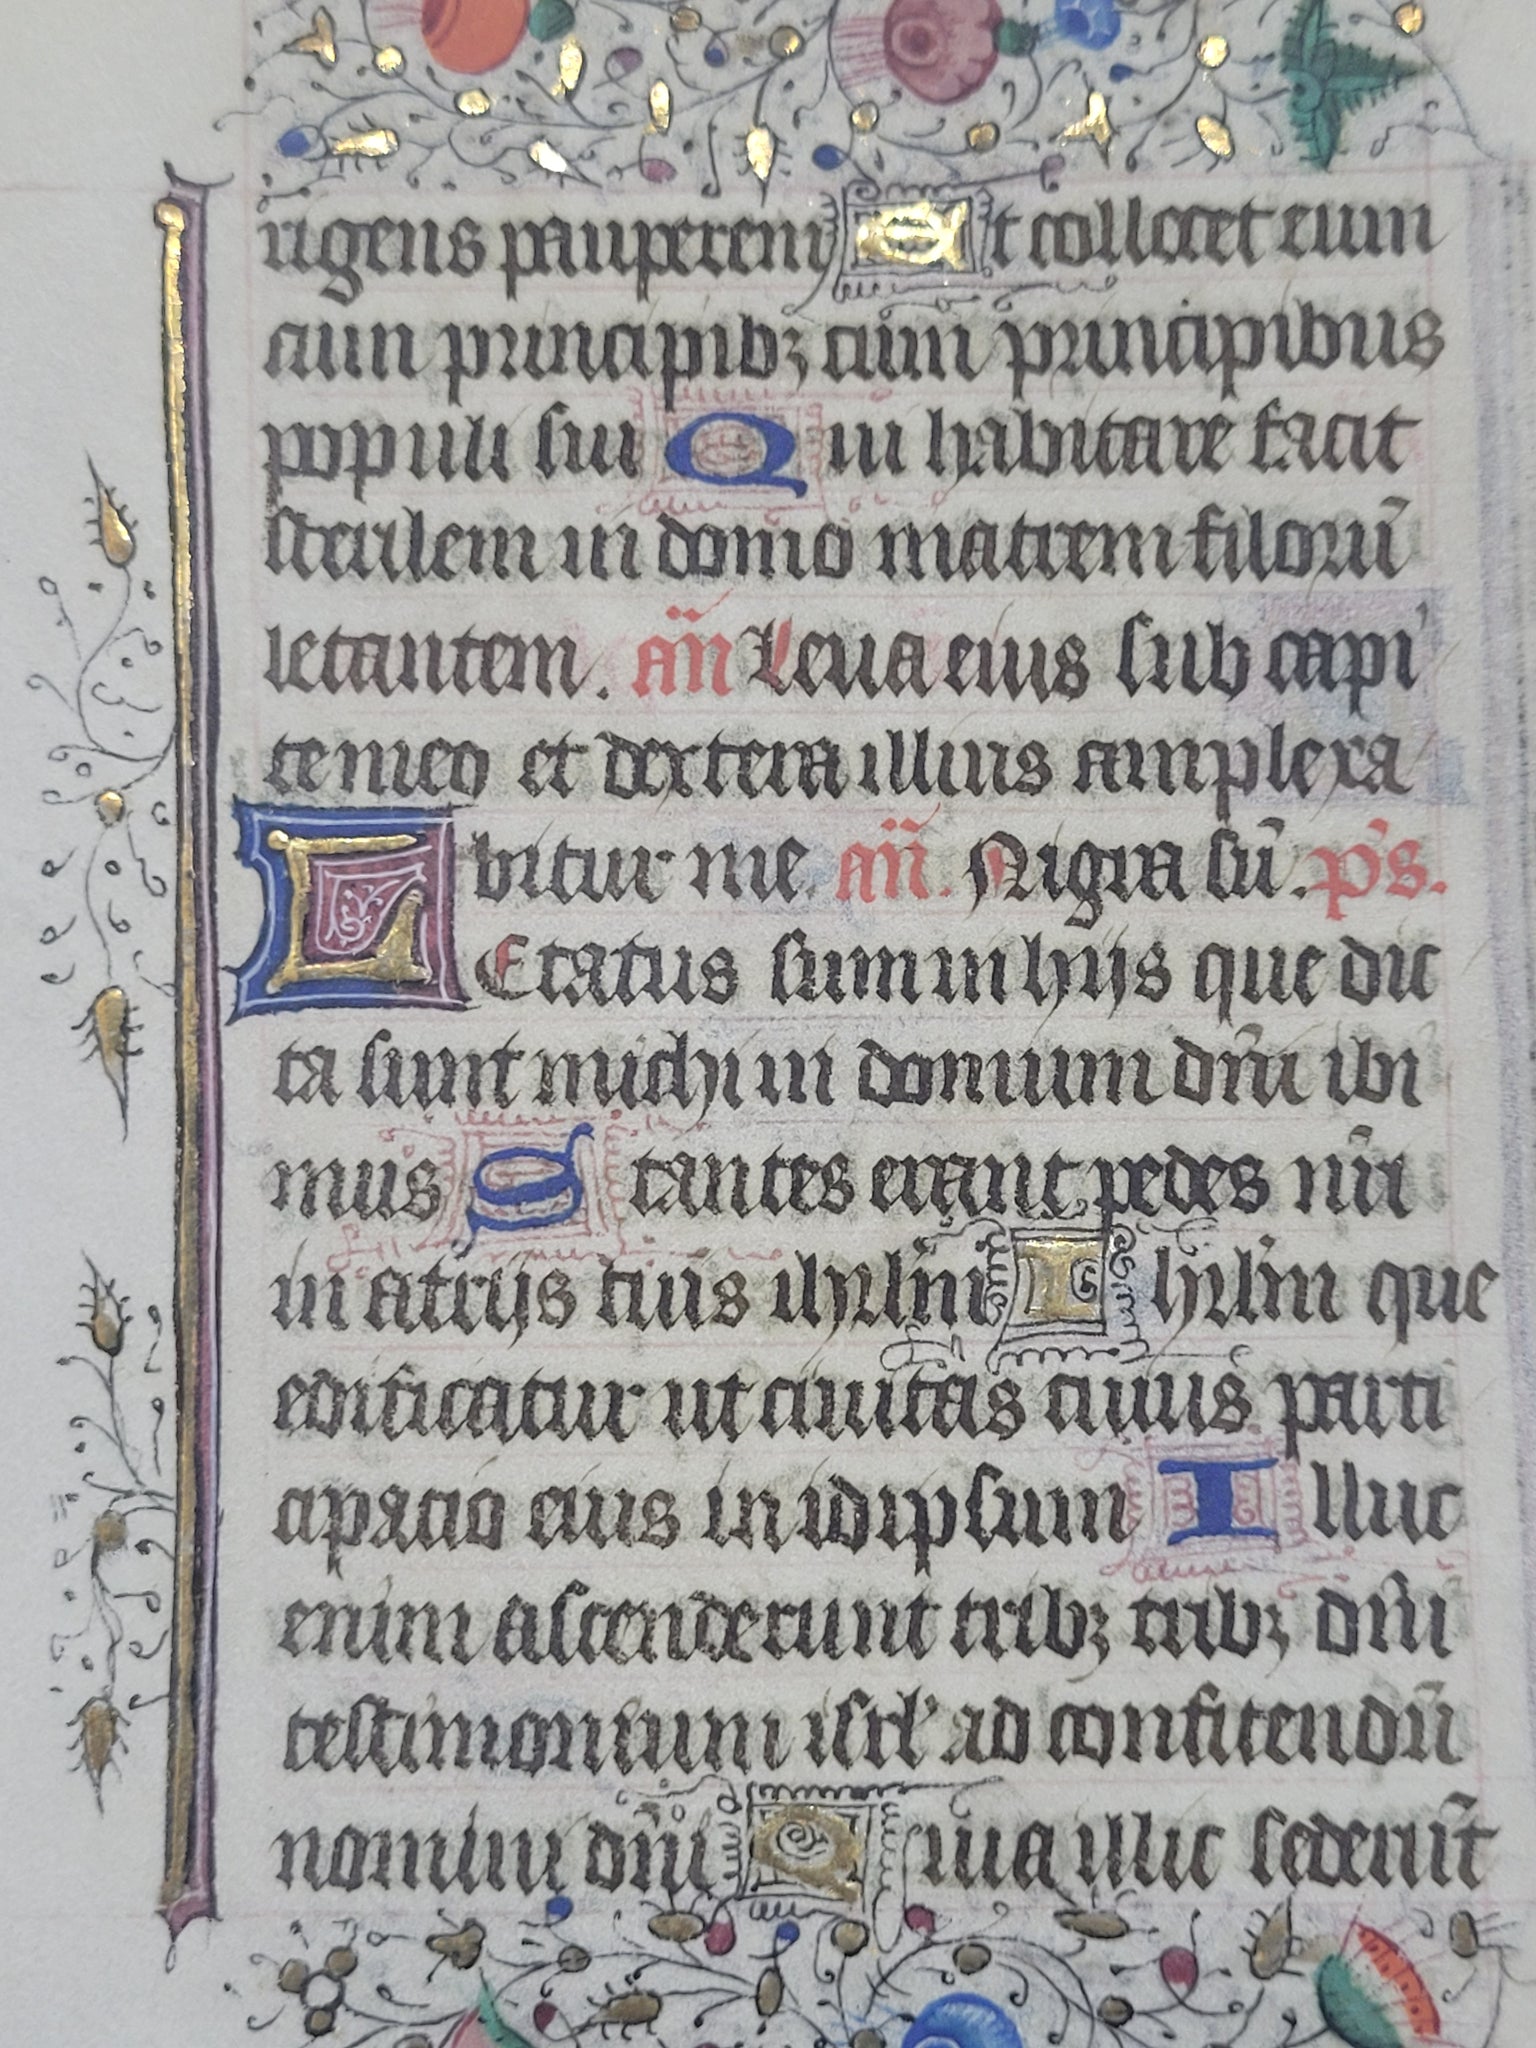 rigens pauperem Et collocet eum
cum principibꝫ cum principibus
populi sui Qui habitare facit
sterilem in domo matrem filiorū
letantem. an̄ Leua eius sub capi
te meo et dextera illius amplexa
bitur me. an̄. Nigra sū. ps.
LEtatus sum in hijs que dic
ta sunt michi in domum dn̄i ibi
mus Stantes erant pedes nr̄i
in atrijs tuis ihrl̄m Ihrl̄m que
edificatur ut ciuitas cuius parti
cipacio eius in idipsum Illuc
enim ascenderunt tribꝫ tribꝫ dn̄i
testimonium isrl' ad confitendū
nomini dn̄i Quia illic sederūt